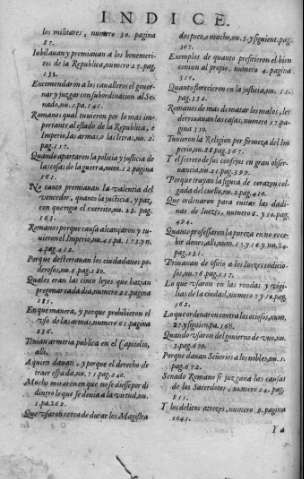 INDICE.
los militares, numero 30. pagina
25.
Iubilauan y premiauan a los benemeri-
tos de la Republica, numero 27. pag.
133.
Encomendaron a los caualleros el gouer-
nar y juzgar con subordinacion al Se-
nado, nu. 2. pa. 141.
Romanos qual tuuieron por lo mas im-
portante al estado de la Republica, e
Imperio, las armas, o las letras, nu. 1.
pag. 117.
Quando apartaron la policia y justicia de
las cosas de la guerra, num. 2. pag.
161.
No tanto premiauan la valentia del
vencedor, quanto la justicia, y paz,
con que rigio el exercito, nu. 22. pag.
163.
Romanos porque causa alcançaron y tu-
uieron el Imperio, nu. 42. pa. 173. y n.
4. pag.
Porque desterrauan los ciudadanos po-
derosos, nu. 9. pag. 180.
Quales eran las cinco leyes que hazian
pregonar cada dia, numero 21. pagina
185.
En que manera, y porque prohibieron el
vso de las armas, numero 61. pagina
236.
Tenian armeria publica en el Capitolio,
alli.
A quien dauan, y porque el derecho de
traer espada, nu. 71. pag. 240.
Mucho miraron en que no se diesse por di
nero lo que se deuia a la virtud, num.
1. pa. 262.
Que vsaron cerca de durar los Magistra
dos poco, o mucho, nu. 5. y siguient. pag.
307.
Exemplos de quanto prefirieron el bien
comun al propio, numero 4. pagina
319.
Quanto florecieron en la justicia, nu. 11.
pag. 332.
Romanos de mas de matar los malos, les
derribauan las casas, numero 17. pa-
gina 330.
Tuuieron la Religion por firmeza del Im
perio, nu. 28. pag. 367.
Y el secreto de sus consejos en gran obser-
uancia, nu. 41. pag. 399.
Porque traian la figura de coraçon col-
gada del cuello, num. 4. pag. 410.
Que ordenaron para euitar las dadi-
uas de Iuezes, numero 8. y 10. pag.
424.
Quanto professaron la pureza en no rece-
bir dones, alli, num. 15. y 16. y nu. 34.
pag. 431.
Priuauan de oficio a los Iuezes codicio-
sos, nu. 76. pag. 517.
Lo que vsaron en las rondas y vigi-
lias de la ciudad, numero 7. y 12. pag.
562.
Lo que ordenaron contra los ociosos, num.
27. y siguien. pa. 568.
Quando vsaron del gouierno de vno, nu.
5. pag. 590.
Porque dauan Señorios a los nobles, nu. 1.
pag. 672.
Senado Romano si juzgaua las causas
de los Sacerdotes, numero 14. pag.
925.
Y los delitos atrozes, numero 9. pagina
1043.